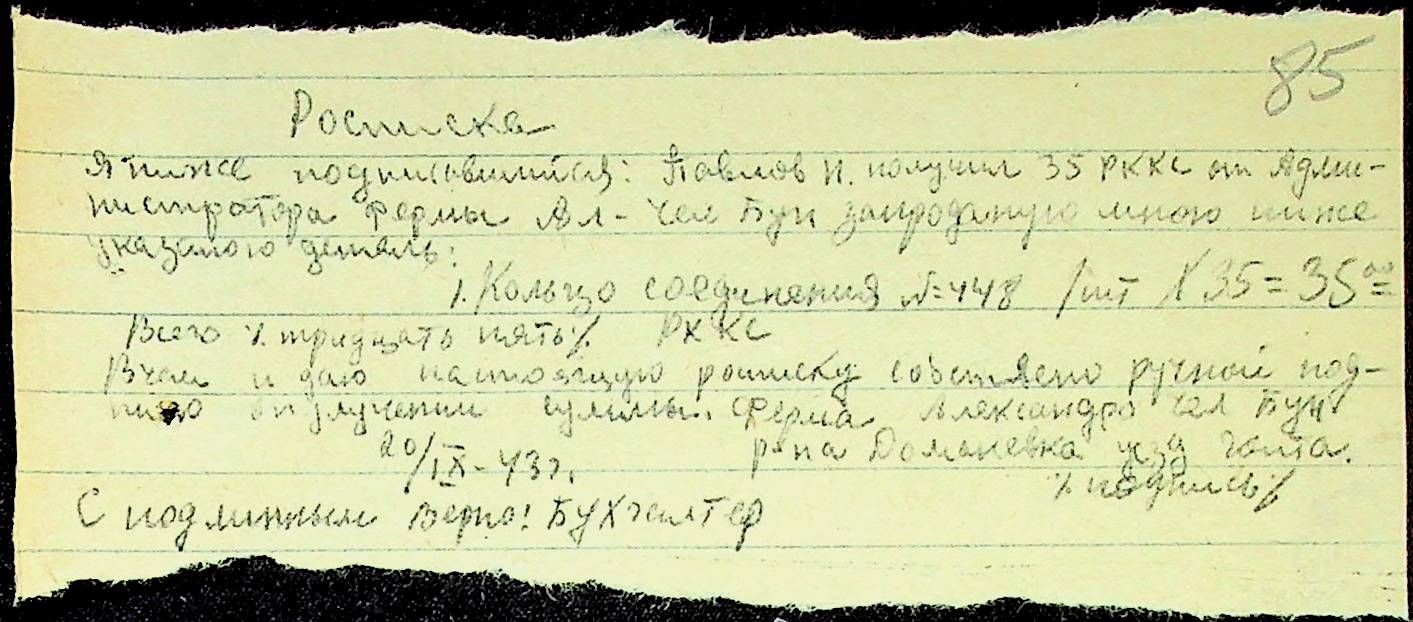 85
Росписка
Я ниже подписавшийся: Павлов Н. получил 35 РККС от Адми-
нистротора Фермы Ал-Чел Бун запроданую мною ниже
указаною деталь:
1. Кольцо соединения №448 1 шт Х 35 = 35 00
Всего % тридцать пять % РККС
Вчем и даю настоящую росписку собственно ручной под-
о получении суммы. Ферма Александро Чел Бун
20/IX-43 г. р-на Доманевка уезд Голта.
% подпись %
С подлинным верно! Бухгалтер